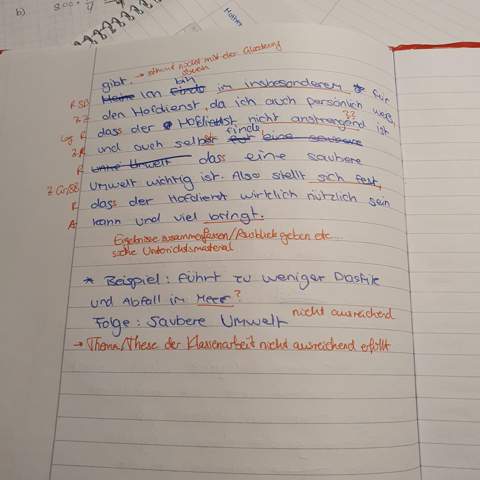 b) 800
gibt. → stimmt nicht mit der Gliederung überein
R SB Meine Im Finde bin im insbesonderem für
ZZ den Hofdienst, da ich auch persönlich weiß,
R dass der Hofdienst nicht anstrengend ist
ZR und auch selbst finde für eine saubere
R unte Umwelt dass eine saubere
Z Gr SB Umwelt wichtig ist. Also stellt sich fest,
R dass der Hofdienst wirklich nützlich sein
A kann und viel bringt.
Ergebnisse zusammenfassen/Ausblick geben etc...
siehe Unterrichtsmaterial
* Beispiel: Führt zu weniger Plastik
und Abfall im Meer?
Folge: Saubere Umwelt nicht ausreichend
→ Thema/These der Klassenarbeit nicht ausreichend erfüllt